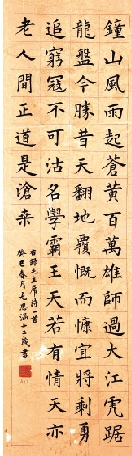 鐘山風雨起蒼黃百萬雄師過大江虎踞
龍盤今勝昔天翻地覆慨而慷宜將剩勇
追窮寇不可沽名學霸王天若有情天亦
老人間正道是滄桒
右録毛主席詩一首
癸巳春月毛思涵十二歲書